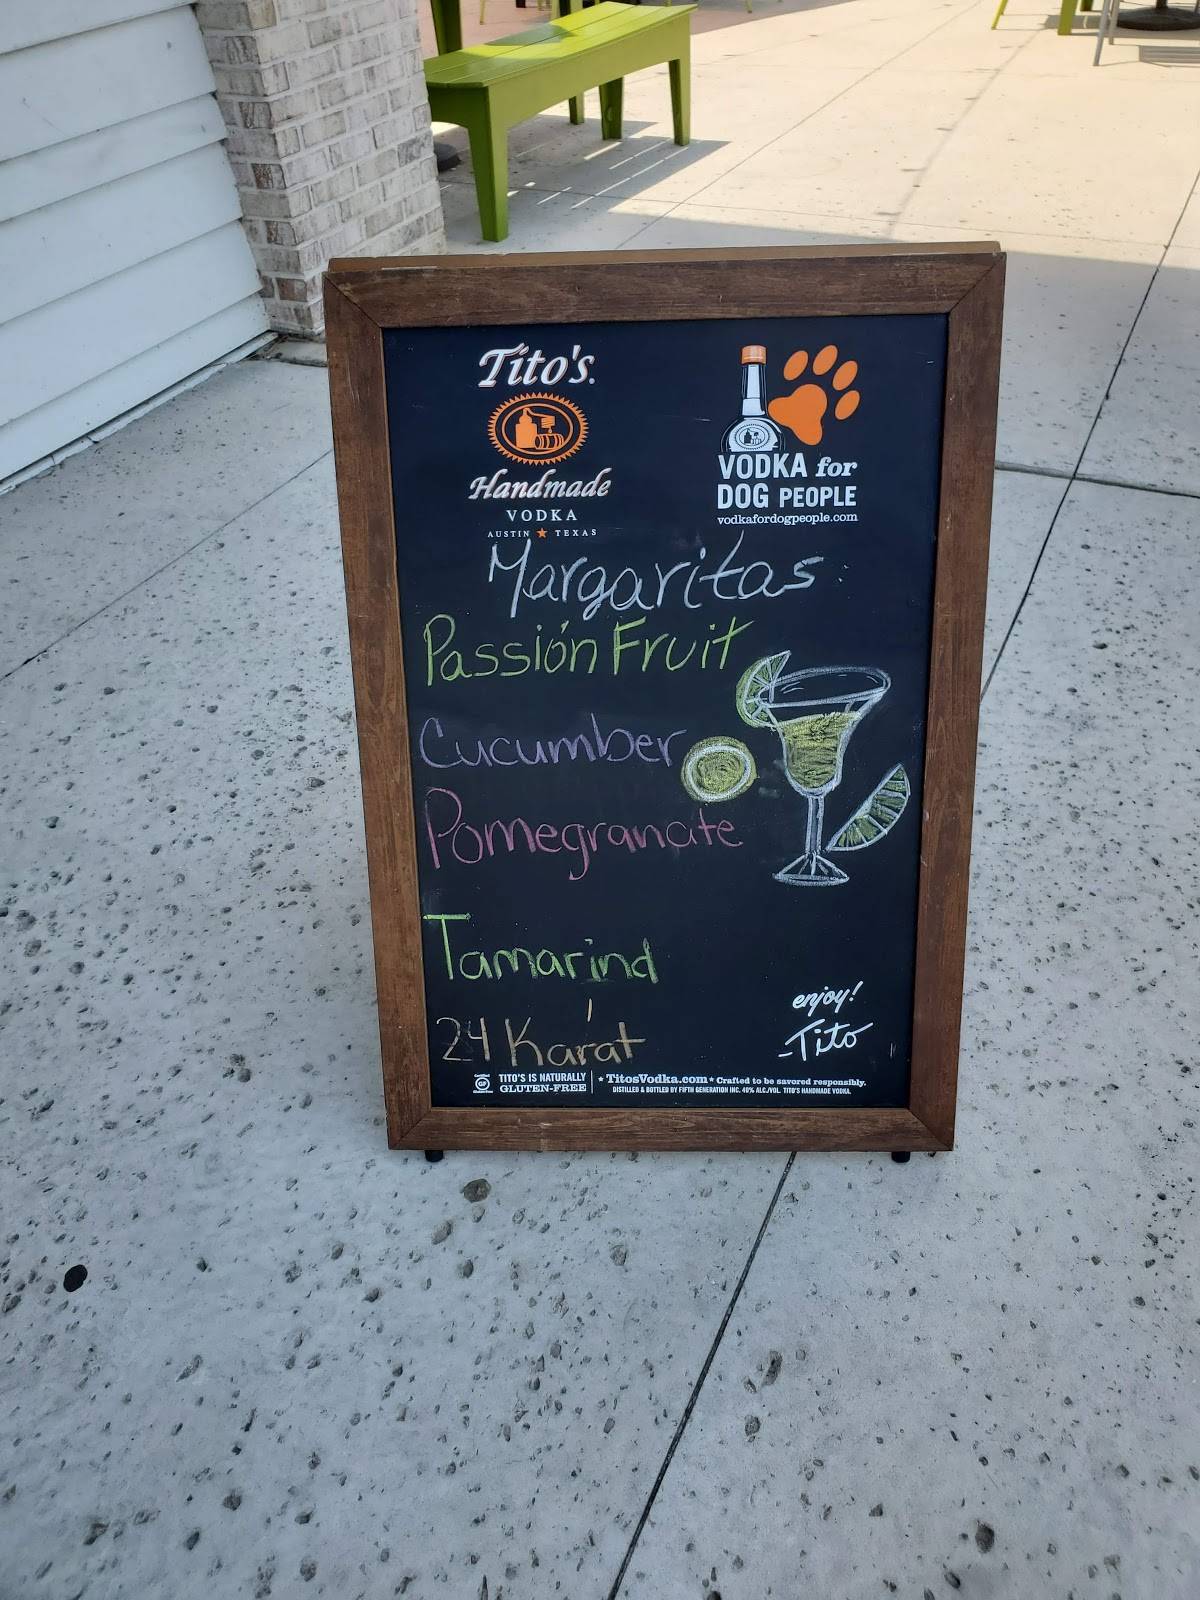 Tito's.
Handmade
VODKA
AUSTIN ★ TEXAS
VODKA for
DOG PEOPLE
vodkafordogpeople.com
Margaritas:
Passión Fruit
Cucumber
Pomegranate
Tamarind
24 Karat
enjoy!
-Tito
GF
TITO'S IS NATURALLY
GLUTEN-FREE
★ TitosVodka.com ★ Crafted to be savored responsibly.
DISTILLED & BOTTLED BY FIFTH GENERATION INC. 40% ALC./VOL. TITO'S HANDMADE VODKA.